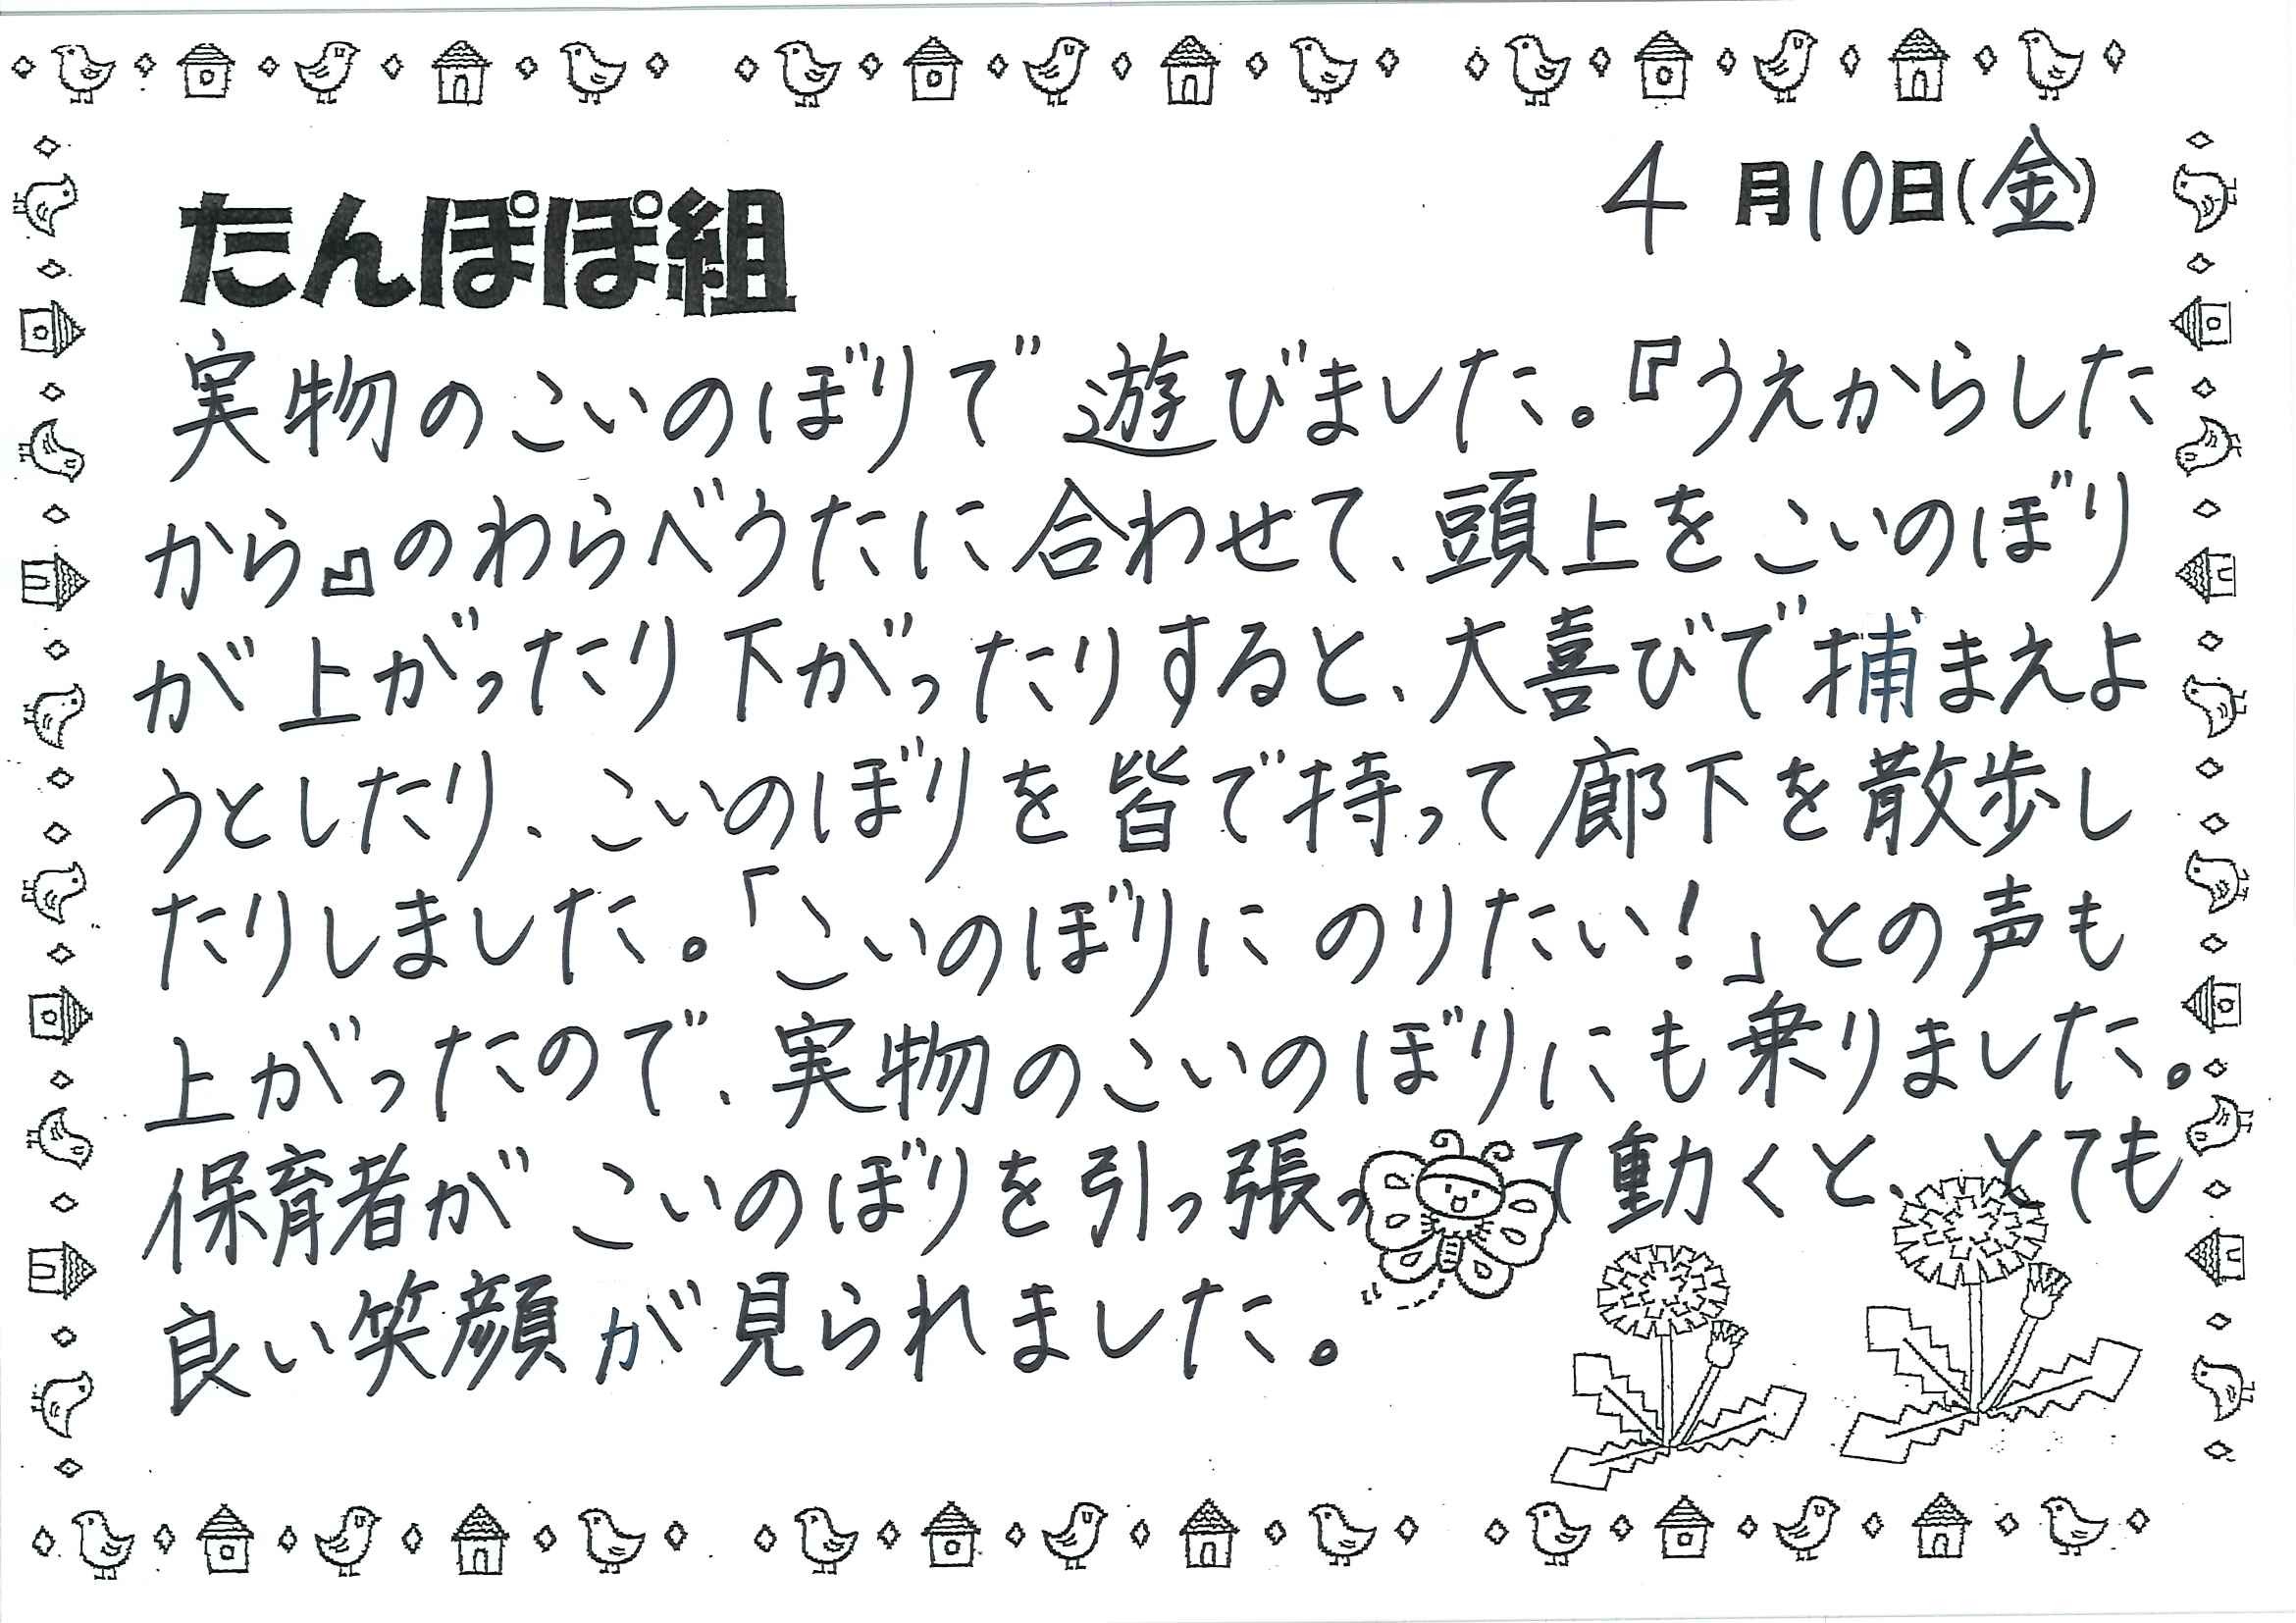 4月10日(金)
たんぽぽ組
実物のこいのぼりで遊びました。『うえからした
から』のわらべうたに合わせて、頭上をこいのぼり
が上がったり下がったりすると、大喜びで捕まえよ
うとしたり、こいのぼりを皆で持って廊下を散歩し
たりしました。「こいのぼりにのりたい!」との声も
上がったので、実物のこいのぼりにも乗りました。
保育者がこいのぼりを引っ張って動くと、とても
良い笑顔が見られました。